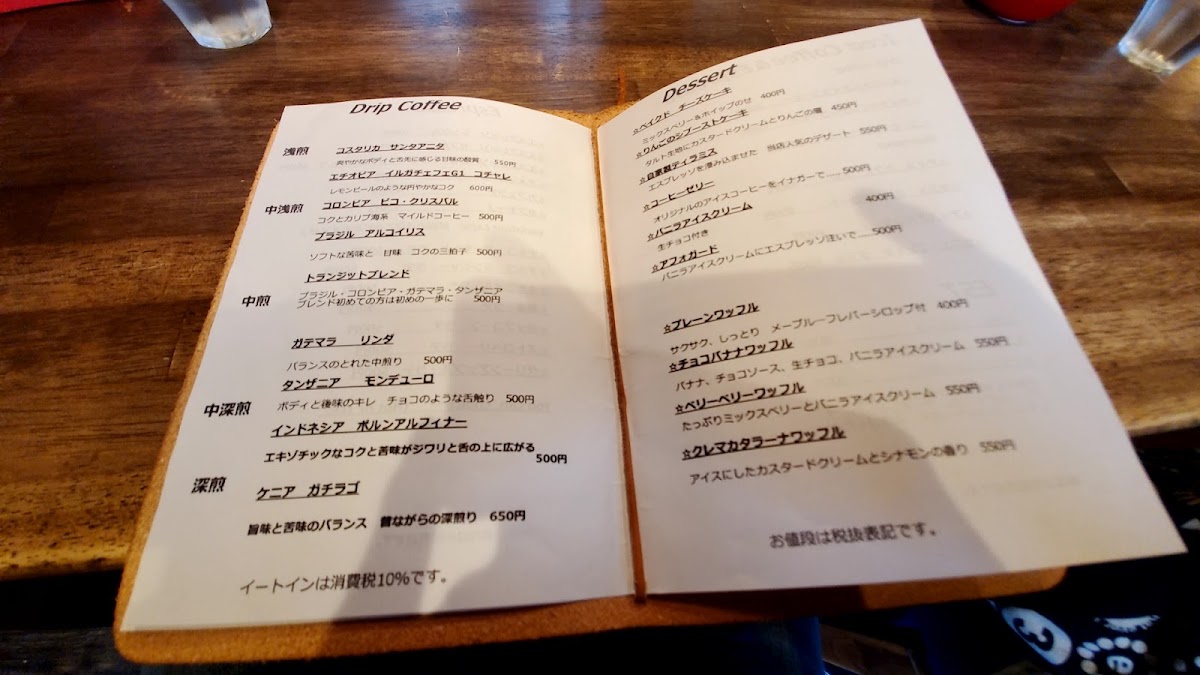 Drip Coffee
浅煎
コスタリカ サンタアニタ
爽やかなボディと舌先に感じる甘味の酸質 550円
エチオピア イルガチェフェG1 コチャレ
レモンピールのような円やかなコク 600円
中浅煎
コロンビア ピコ・クリスバル
コクとカリブ海系 マイルドコーヒー 500円
ブラジル アルコイリス
ソフトな苦味と 甘味 コクの三拍子 500円
トランジットブレンド
中煎
ブラジル・コロンビア・ガテマラ・タンザニア
ブレンド初めての方は初めの一歩に 500円
ガテマラ リンダ
バランスのとれた中煎り 500円
タンザニア モンデューロ
中深煎
ボディと後味のキレ チョコのような舌触り 500円
インドネシア ボルンアルフィナー
エキゾチックなコクと苦味がジワリと舌の上に広がる
500円
深煎
ケニア ガチラゴ
旨味と苦味のバランス 昔ながらの深煎り 650円
イートインは消費税10%です。
Dessert
☆ベイクド チーズケーキ
ミックスベリー&ホイップのせ 400円
☆りんごのシブーストケーキ
タルト生地にカスタードクリームとりんごの層 450円
☆自家製ティラミス
エスプレッソを滲み込ませた 当店人気のデザート 550円
☆コーヒーゼリー
オリジナルのアイスコーヒーをイナガーで……500円
☆バニラアイスクリーム
生チョコ付き 400円
☆アフォガード
バニラアイスクリームにエスプレッソ注いで……500円
☆プレーンワッフル
サクサク、しっとり メープルーフレバーシロップ付 400円
☆チョコバナナワッフル
バナナ、チョコソース、生チョコ、バニラアイスクリーム 550円
☆ベリーベリーワッフル
たっぷりミックスベリーとバニラアイスクリーム 550円
☆クレマカタラーナワッフル
アイスにしたカスタードクリームとシナモンの香り 550円
お値段は税抜表記です。